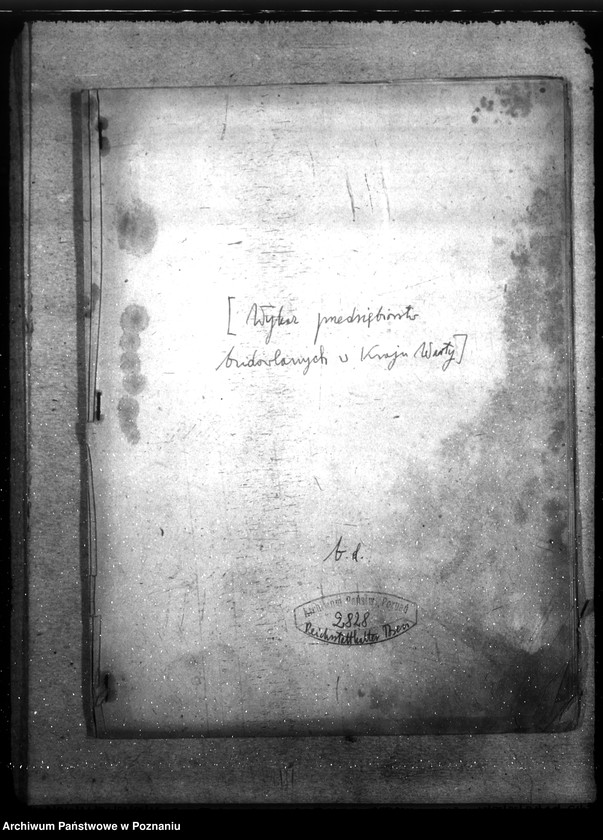 [Wykaz przedsiębiorstw
budowlanych w Kraju Warty]
b.d.
Archiwum Państw. Poznań
2828
Reichsstatthalter Posen
Archiwum Państwowe w Poznaniu